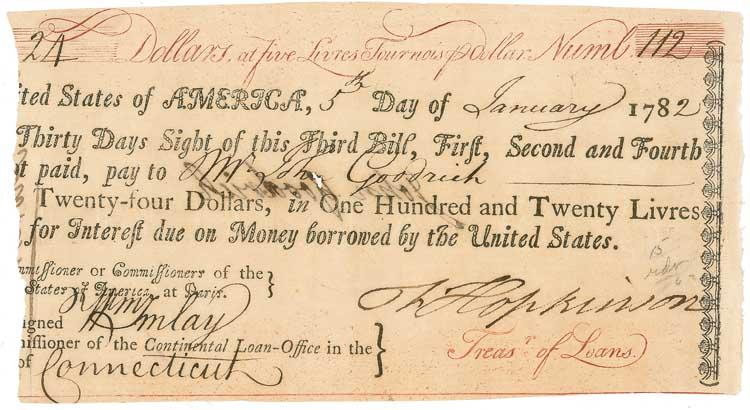 24 Dollars, at five Livres Tournois ⅌ Dollar. Numb. 112
ited States of AMERICA, 5th Day of January 1782
Thirty Days Sight of this Third Bill, Firſt, Second and Fourth
t paid, pay to Mr. John Goodrich
Twenty-four Dollars, in One Hundred and Twenty Livres
for Intereſt due on Money borrowed by the United States.
mmiſſioner or Commiſſioners of the
States of America, at Paris.
Fs. Hopkinson
Imlay
igned
miſſioner of the Continental Loan-Office in the
of Connecticut
Treasr. of Loans.